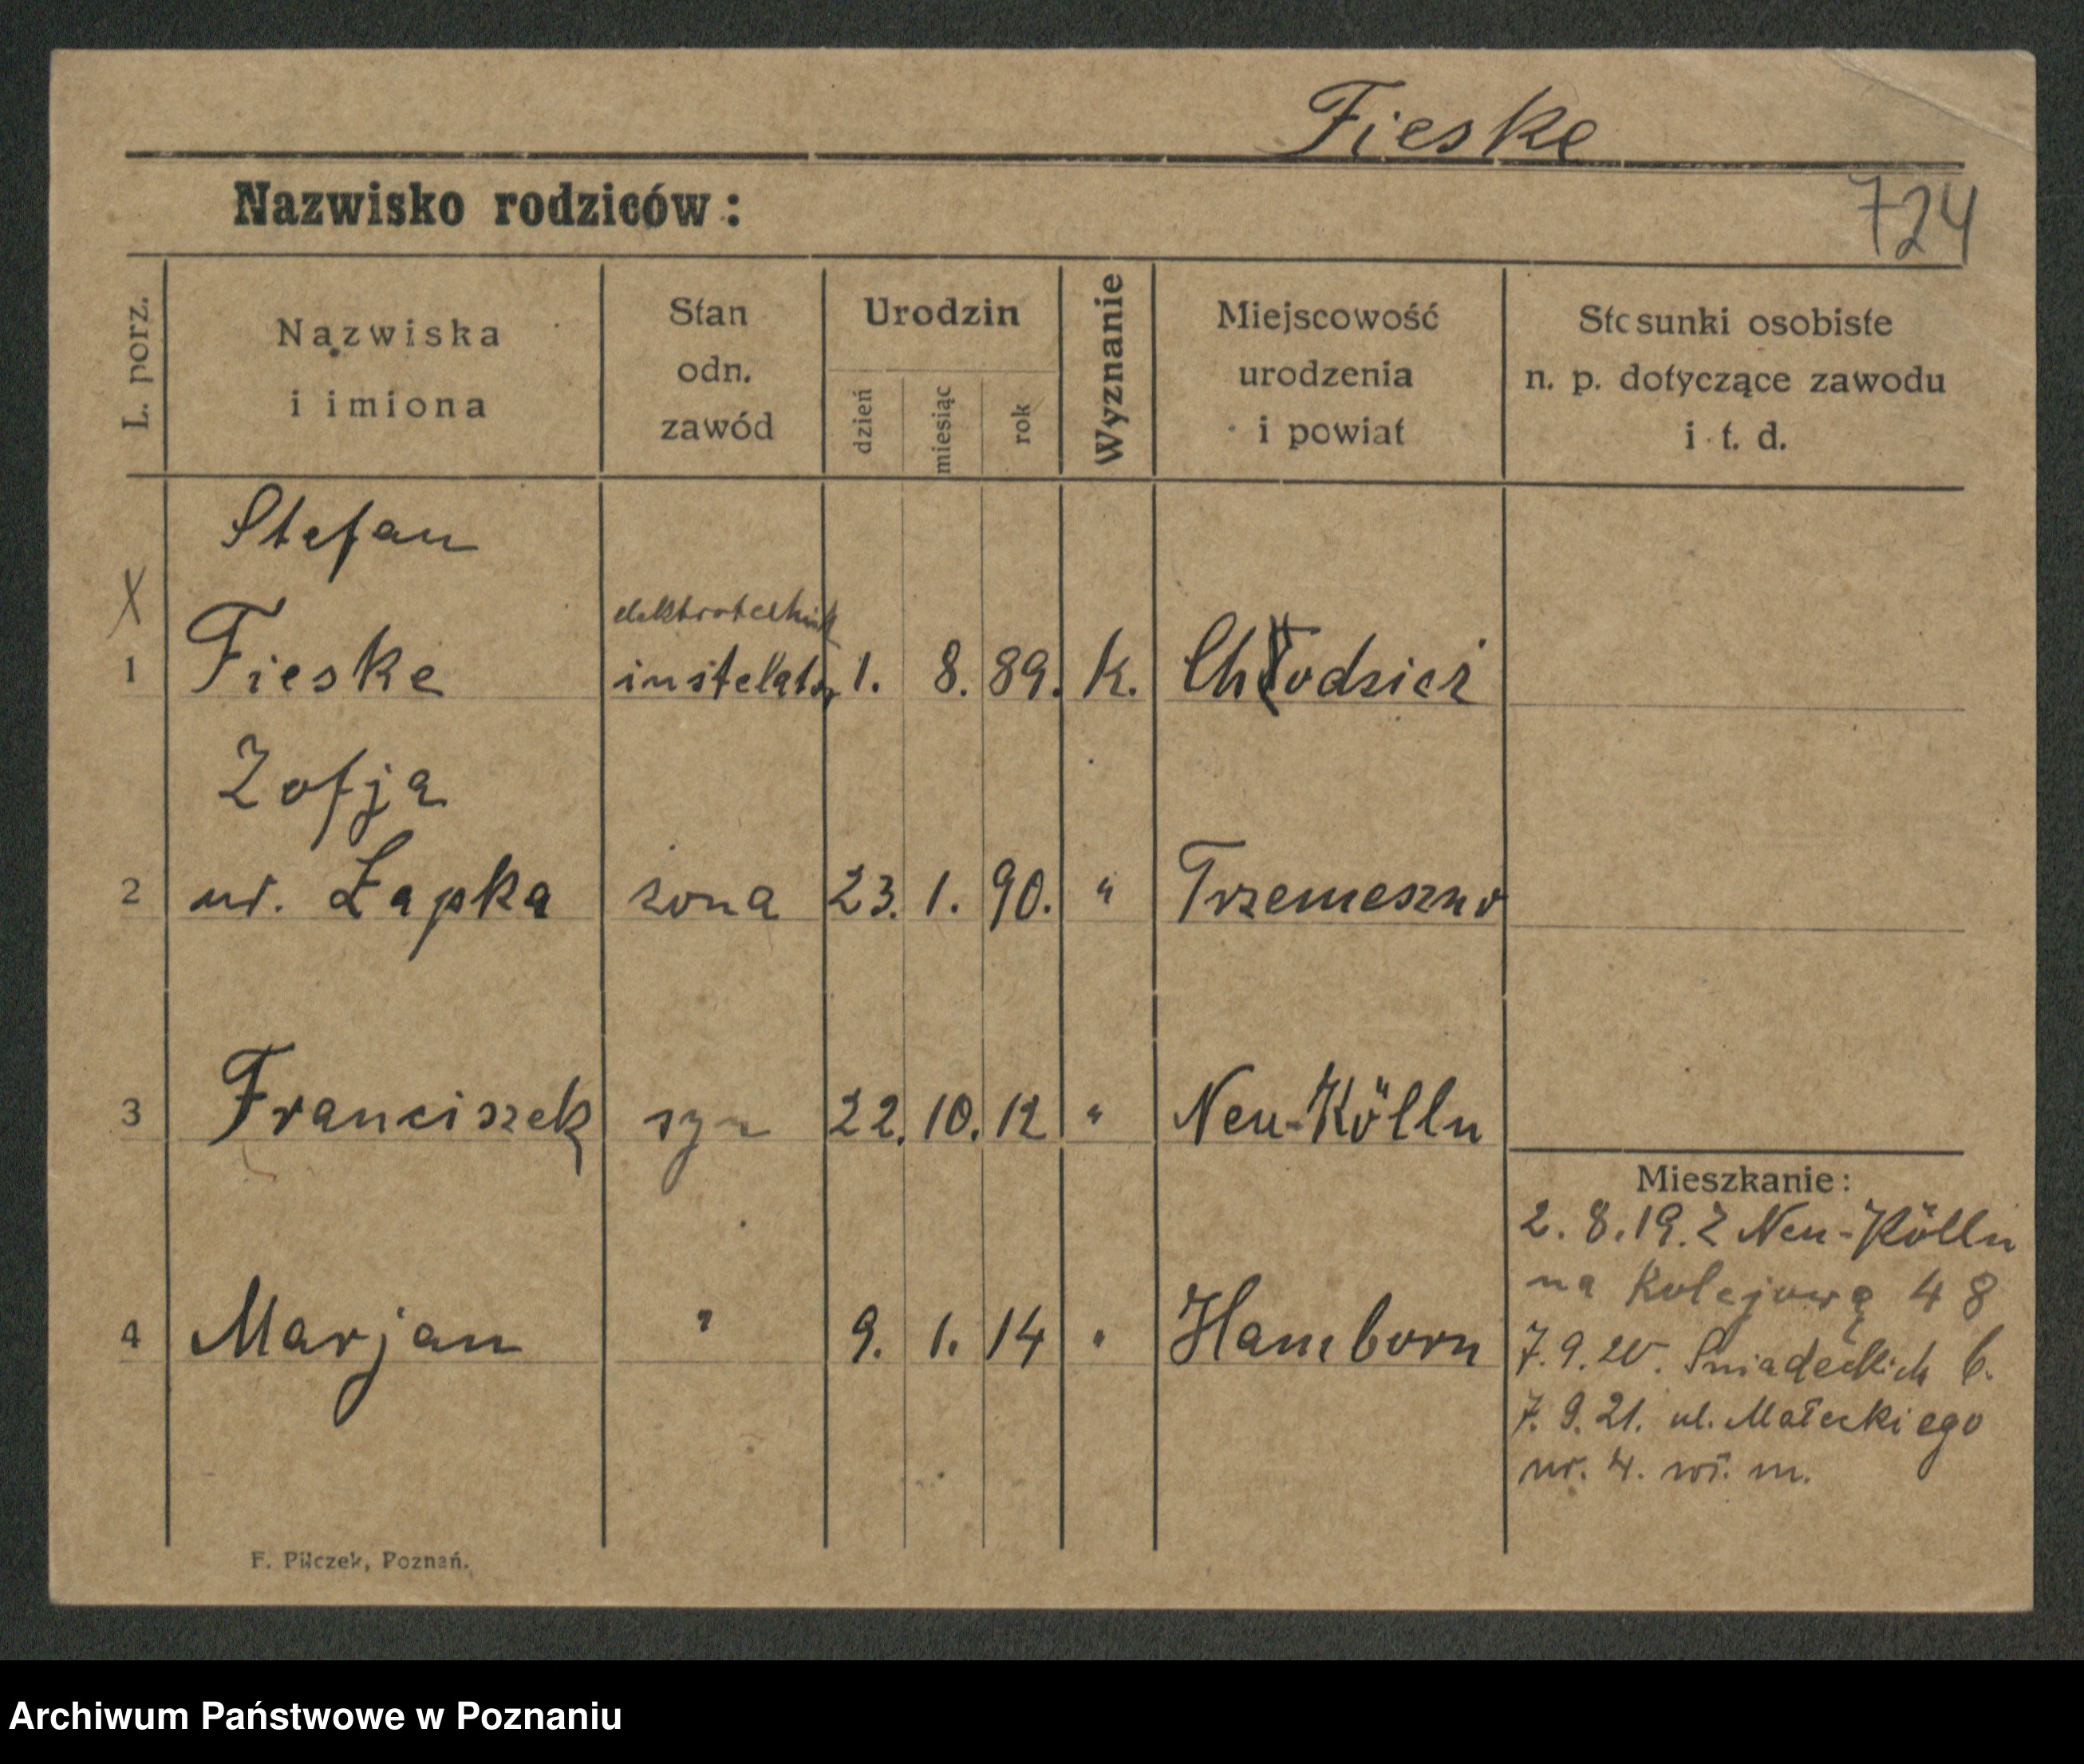 Fieske
Nazwisko rodziców:
724
L. porz.
Nazwiska
i imiona
Stan
odn.
zawód
Urodzin
dzień
miesiąc
rok
Wyznanie
Miejscowość
urodzenia
i powiat
Stosunki osobiste
n. p. dotyczące zawodu
i t. d.
Stefan
X
elektrotechnik
1 Fieske instelator 1. 8. 89. K. Chodzież
Zofja
2 ur. Łapka żona 23. 1. 90. " Trzemeszno
3 Franciszek syn 22. 10. 12 " Neu-Kölln
4 Marjan " 9. 1. 14 " Hamborn
Mieszkanie:
2. 8. 19. Z Neu-Kölln
na Kolejową 48
7. 9. 20. Śniadeckich 6.
7. 9. 21. ul. Małeckiego
nr. 4. wł. m.
F. Pilczek, Poznań.
Archiwum Państwowe w Poznaniu